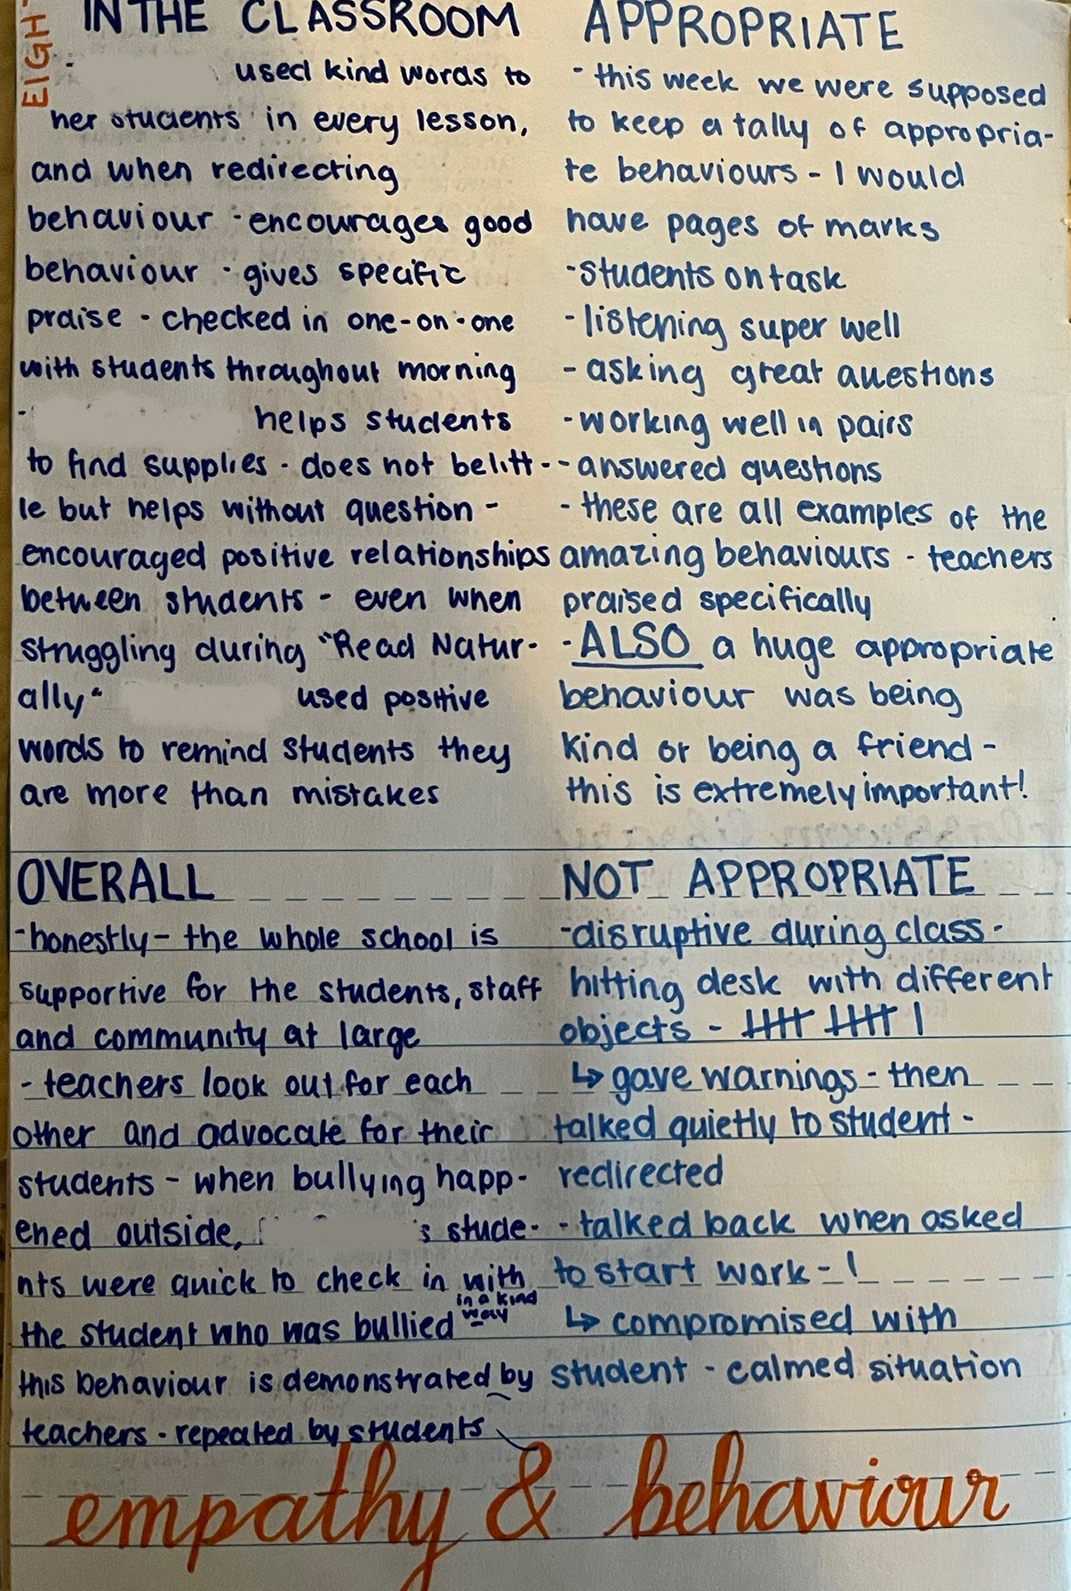 EIGHT
IN THE CLASSROOM
- used kind words to
her students in every lesson,
and when redirecting
behaviour - encourages good
behaviour - gives specific
praise - checked in one-on-one
with students throughout morning
- helps students
to find supplies - does not belitt-
le but helps without question -
encouraged positive relationships
between students - even when
struggling during "Read Natur-
ally" used positive
words to remind students they
are more than mistakes
APPROPRIATE
- this week we were supposed
to keep a tally of appropria-
te behaviours - I would
have pages of marks
- students on task
- listening super well
- asking great questions
- working well in pairs
- answered questions
- these are all examples of the
amazing behaviours - teachers
praised specifically
- ALSO a huge appropriate
behaviour was being
kind or being a friend -
this is extremely important!
OVERALL
- honestly - the whole school is
supportive for the students, staff
and community at large
- teachers look out for each
other and advocate for their
students - when bullying happ-
ened outside, 's stude-
nts were quick to check in with
the student who was bullied in a kind way
this behaviour is demonstrated by
teachers - repeated by students
NOT APPROPRIATE
- disruptive during class -
hitting desk with different
objects - |||| |||| |
↳ gave warnings - then
talked quietly to student -
redirected
- talked back when asked
to start work - |
↳ compromised with
student - calmed situation
empathy & behaviour